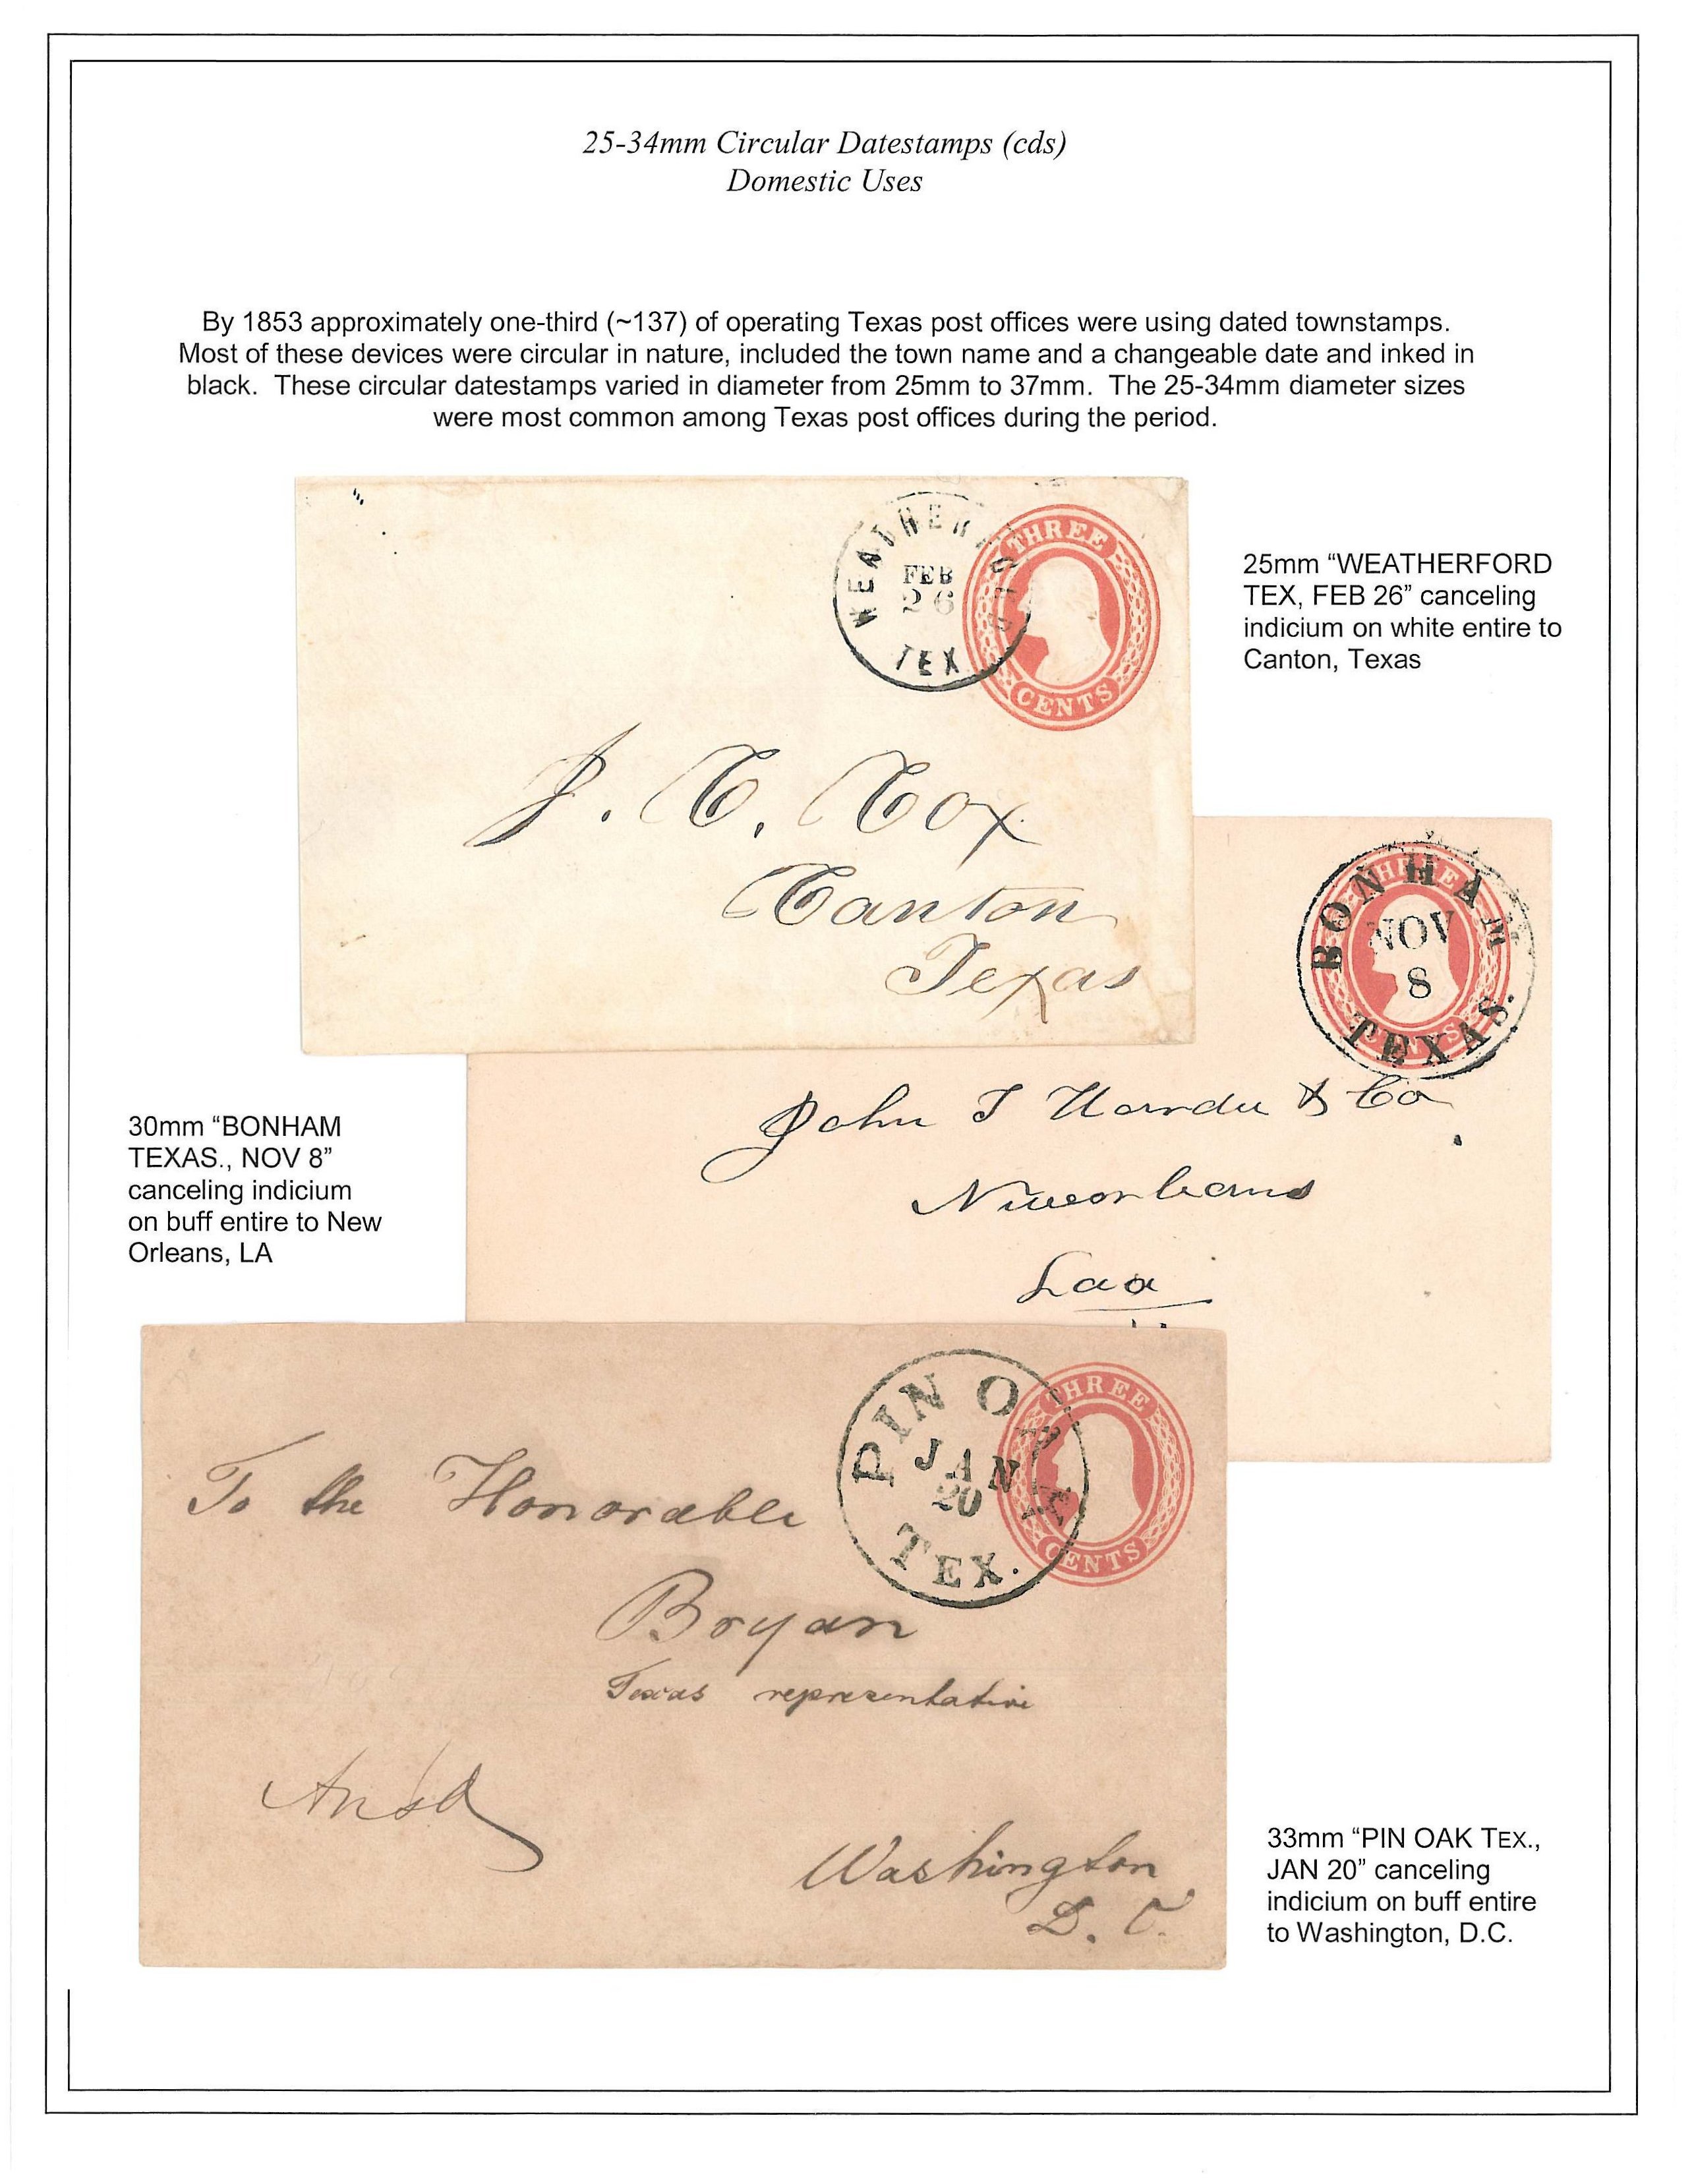 25-34mm Circular Datestamps (cds)
Domestic Uses
By 1853 approximately one-third (~137) of operating Texas post offices were using dated townstamps.
Most of these devices were circular in nature, included the town name and a changeable date and inked in
black. These circular datestamps varied in diameter from 25mm to 37mm. The 25-34mm diameter sizes
were most common among Texas post offices during the period.
WEATHERFORD
FEB
26
TEX
THREE
CENTS
J. C. Cox
Canton
Texas
25mm “WEATHERFORD
TEX, FEB 26” canceling
indicium on white entire to
Canton, Texas
BONHAM
NOV
8
TEXAS.
THREE
CENTS
John T & Co
Neworleans
Laa
30mm “BONHAM
TEXAS., NOV 8”
canceling indicium
on buff entire to New
Orleans, LA
PIN OAK
JAN
20
TEX.
THREE
CENTS
To the Honorable
Bryan
Texas representative
Ansd
Washington
D. C.
33mm “PIN OAK TEX.,
JAN 20” canceling
indicium on buff entire
to Washington, D.C.